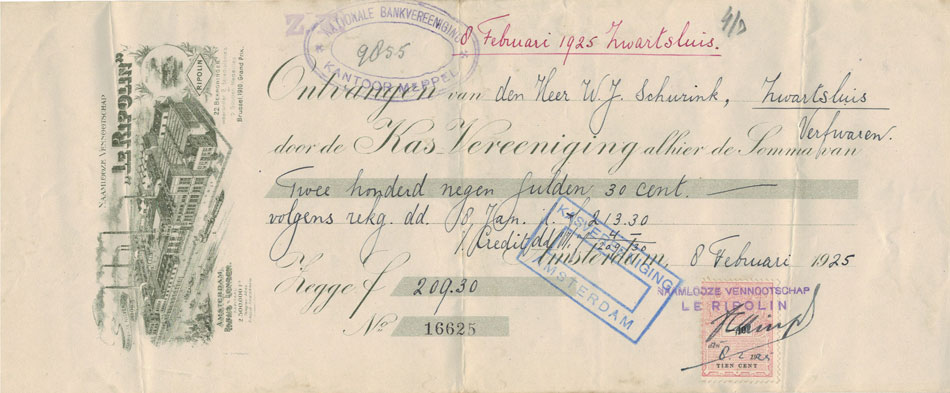 NAAMLOOZE VENNOOTSCHAP
„LE RIPOLIN”
RIPOLIN
22 BEKRONINGEN
Brussel 1910 Grand Prix.
AMSTERDAM,
PARIJS - LONDEN
NATIONALE BANKVEREENIGING
9855
KANTOOR MEPPEL
8 Februari 1925 Zwartsluis.
Ontvangen van den Heer W. J. Schurink, Zwartsluis
Verfwaren.
door de Kas-Vereeniging alhier de Somma van
Twee honderd negen gulden 30 cent. —
volgens rekg. dd. 8 Jan. f 213.30
1/ Credit dd. 4.—
209.30
Amsterdam, 8 Februari 1925
KASVEREENIGING
AMSTERDAM
Zegge f 209.30
No. 16625
NAAMLOOZE VENNOOTSCHAP
LE RIPOLIN
TIEN CENT